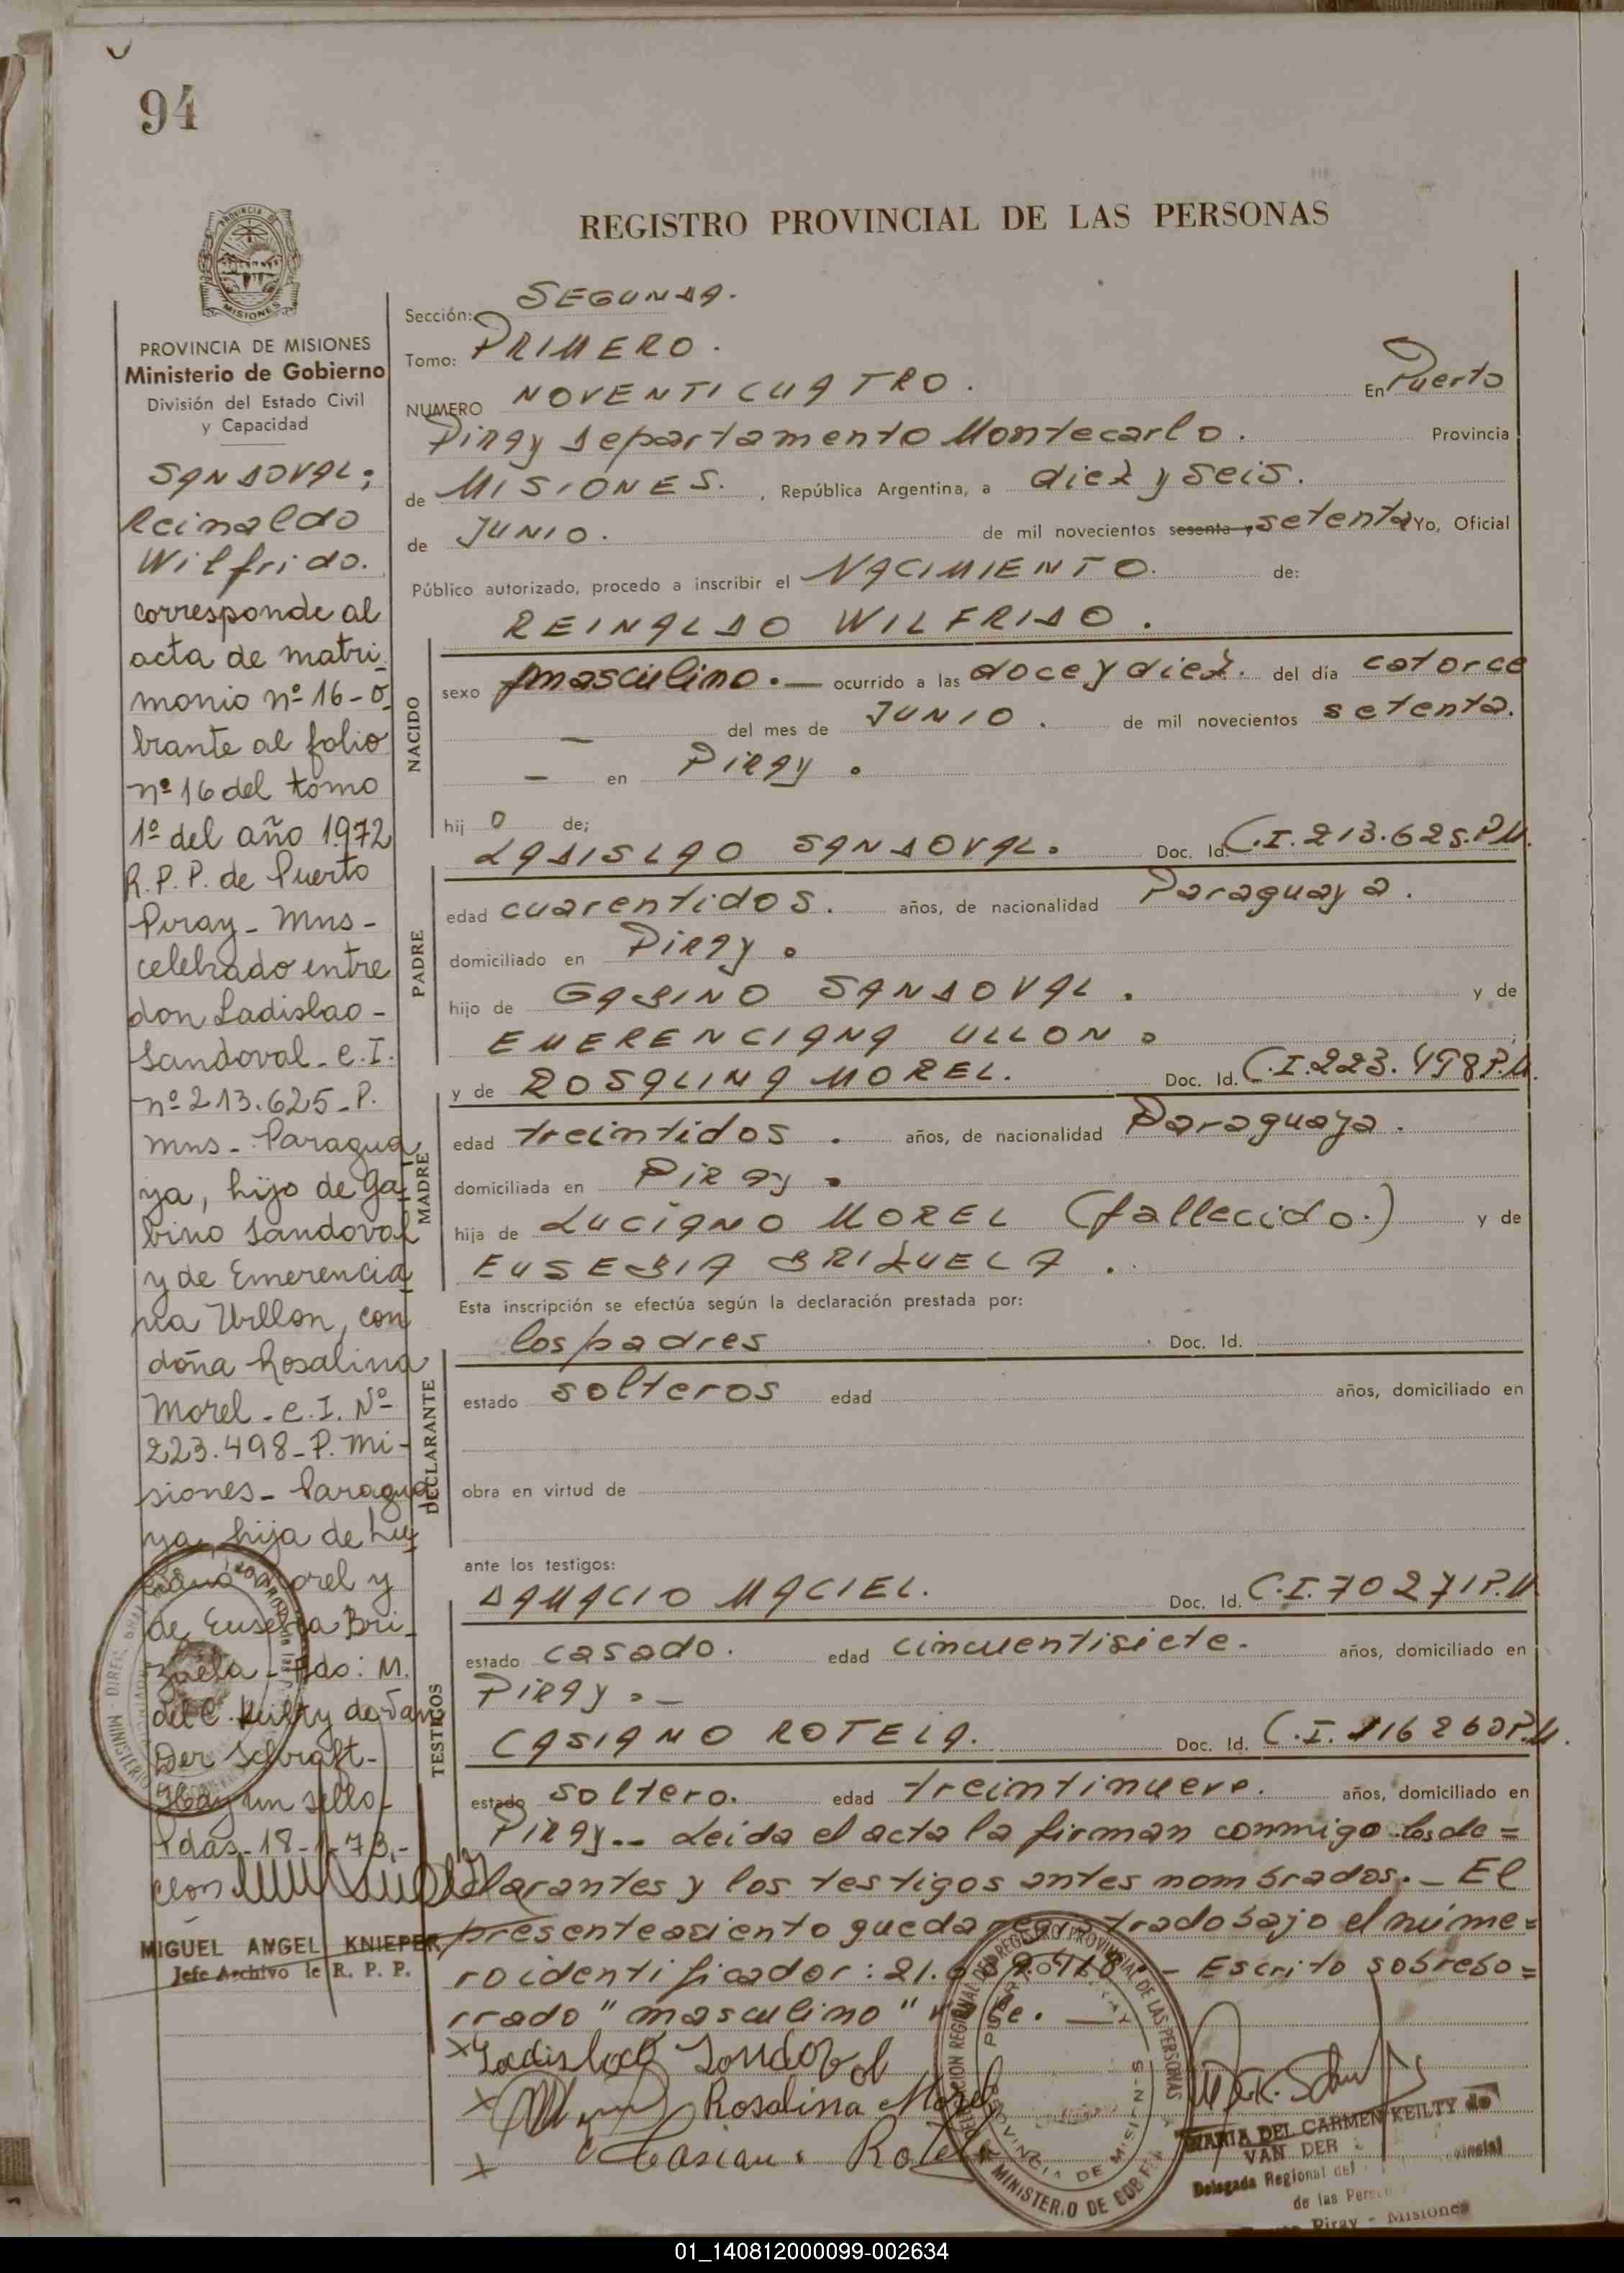 94
REGISTRO PROVINCIAL DE LAS PERSONAS
PROVINCIA DE
MISIONES
PROVINCIA DE MISIONES
Ministerio de Gobierno
División del Estado Civil
y Capacidad
SANDOVAL;
Reinaldo
Wilfrido.
corresponde al
acta de matri
monio nº 16-o
brante al folio
nº 16 del tomo
1º del año 1972
R. P. P. de Puerto
Piray - Mns -
celebrado entre
don Ladislao -
Sandoval - C. I.
nº 213.625 - P.
Mns - Paragua
ya, hijo de Ga
bino Sandoval
y de Emerencia
na Urllon, con
doña Rosalina
Morel - C. I. Nº
223.498 - P. Mi-
siones - Paragua
ya, hija de Lu
Morel y
de Eusebia Bri-
zuela - Fdo: M.
del C. Keilty de Van
Der Schraft -
Hay un sello -
Pdas. 18-1-73.-
MIGUEL ANGEL KNIEPER
Jefe Archivo de R. P. P.
Sección: SEGUNDA.
Tomo: PRIMERO.
NUMERO NOVENTICUATRO. En Puerto
Piray Departamento Montecarlo. Provincia
de MISIONES. , República Argentina, a diez y seis.
de JUNIO. de mil novecientos sesenta y setenta Yo, Oficial
Público autorizado, procedo a inscribir el NACIMIENTO. de:
REINALDO WILFRIDO.
NACIDO
sexo masculino.— ocurrido a las doce y diez. del día catorce
— del mes de JUNIO. de mil novecientos setenta.
— en PIRAY.
hij o de;
LADISLAO SANDOVAL. Doc. Id. C.I. 213.625.P.M.
PADRE
edad cuarentidos. años, de nacionalidad Paraguaya.
domiciliado en PIRAY.
hijo de GABINO SANDOVAL. y de
EMERENCIANA ULLON.
y de ROSALINA MOREL. Doc. Id. C.I. 223.498 P.M.
MADRE
edad treintidos. años, de nacionalidad Paraguaya.
domiciliada en PIRAY.
hija de LUCIANO MOREL (fallecido.) y de
EUSEBIA BRIZUELA.
Esta inscripción se efectúa según la declaración prestada por:
los padres Doc. Id.
DECLARANTE
estado solteros edad años, domiciliado en
obra en virtud de
ante los testigos:
DAMACIO MACIEL. Doc. Id. C.I. 70271 P.M
TESTIGOS
estado casado. edad cincuentisiete. años, domiciliado en
PIRAY.—
CASIANO ROTELA. Doc. Id. C.I. 116260 P.M.
estado soltero. edad treintinueve. años, domiciliado en
PIRAY.- Leida el acta la firman conmigo los de=
clarantes y los testigos antes nombrados.- El
presente asiento queda registrado bajo el núme=
ro identificador: 21. - Escrito sobrebo=
rrado "masculino" vale. —
Ladislado Sandoval
Rosalina Morel
Casiano Rotela
MARIA DEL CARMEN KEILTY de
VAN DER
Delegada Regional del
de las Pers
Piray - Misiones
01_140812000099-002634